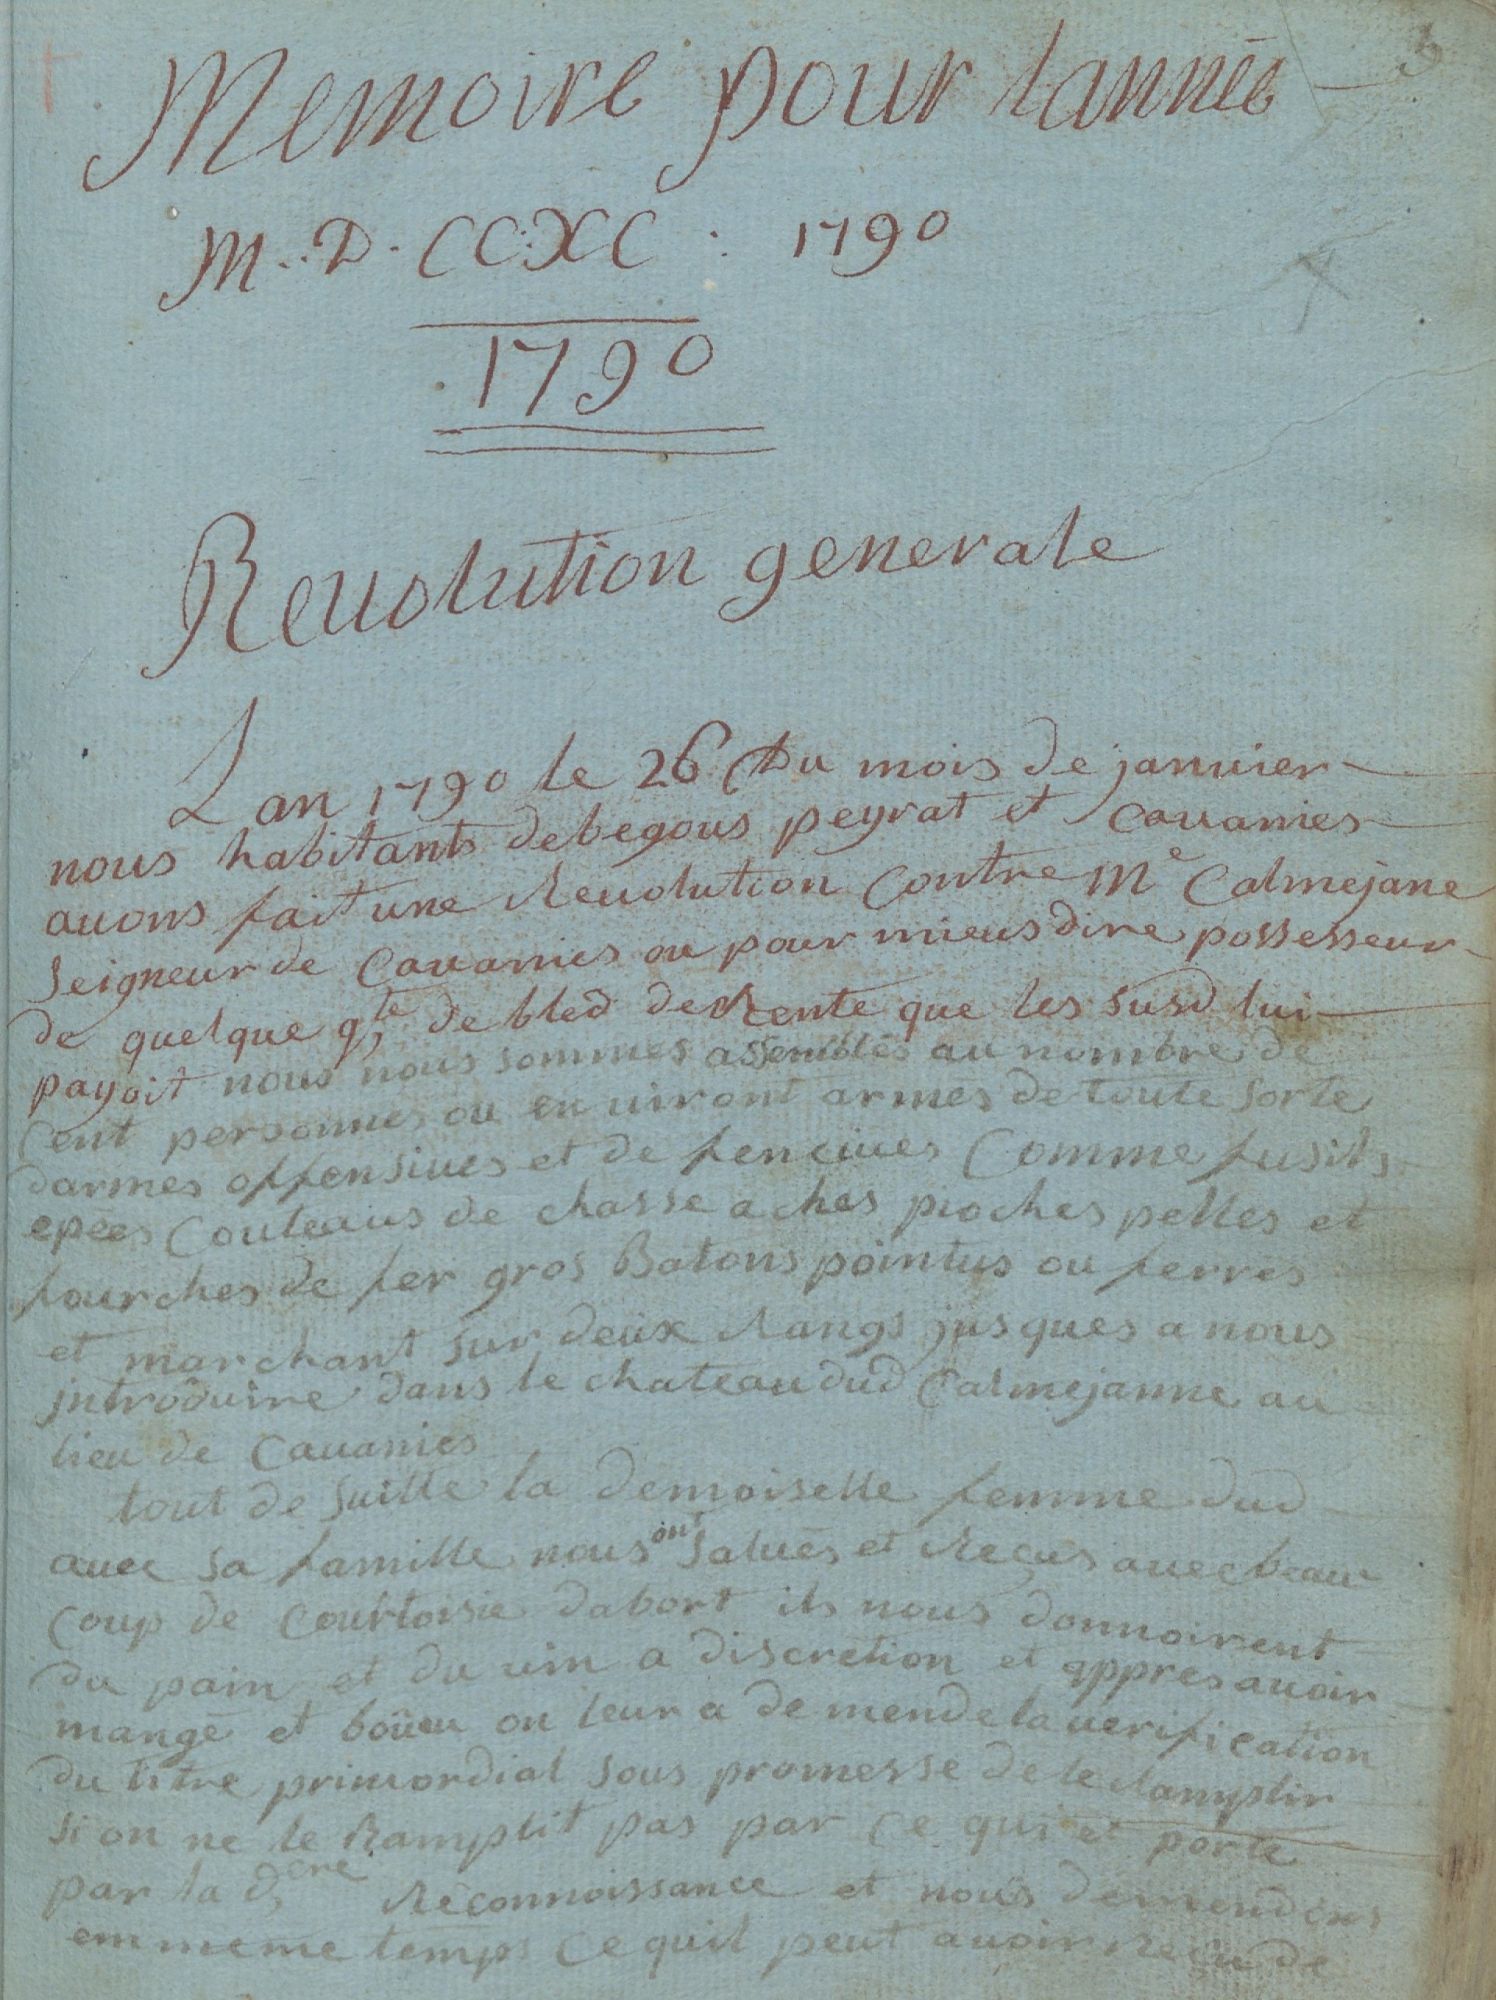 3
Memoire pour lannée
M..D.CCXC : 1790
1790
Revolution generale
Lan 1790 le 26 Du mois de januier
nous habitants debegous peyrat et Cauanies
auons fait une Reuolution Contre Mr Calmejane
seigneur de Cauanies ou pour mieus dire possesseur
de quelque qte de bled de Rente que les susd lui
payoit nous nous sommes assemblés au nombre de
Cent personnes ou en uiront armes de toute sorte
darmes offensiues et de fenciues Comme fusils
epées Couteaus de chasse aches pioches pelles et
fourches de fer gros Batons pointus ou ferres
et marchant sur deux Rangs jusques a nous
introduire dans le chateau dud Calmejanne au
lieu de Cauanies
tout de suitte la demoiselle femme dud
auec sa famille nous ont salués et Reçus auec beau
Coup de Courtoisie dabort ils nous donnoirent
du pain et du uin a discretion et appres auoir
mangé et boüeu on leur a de mende la uerification
du titre primordial sous promesse de le Ramplir
si on ne le Ramplit pas par Ce qui et porte
par la dere Reconnoissance et nous demendens
em meme temps Ce quil peut auoir Reçu de